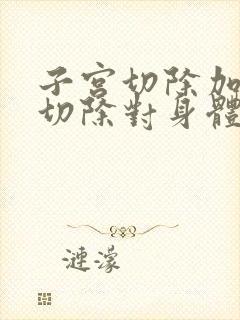 子宮切除加
切除對身體
漣濛